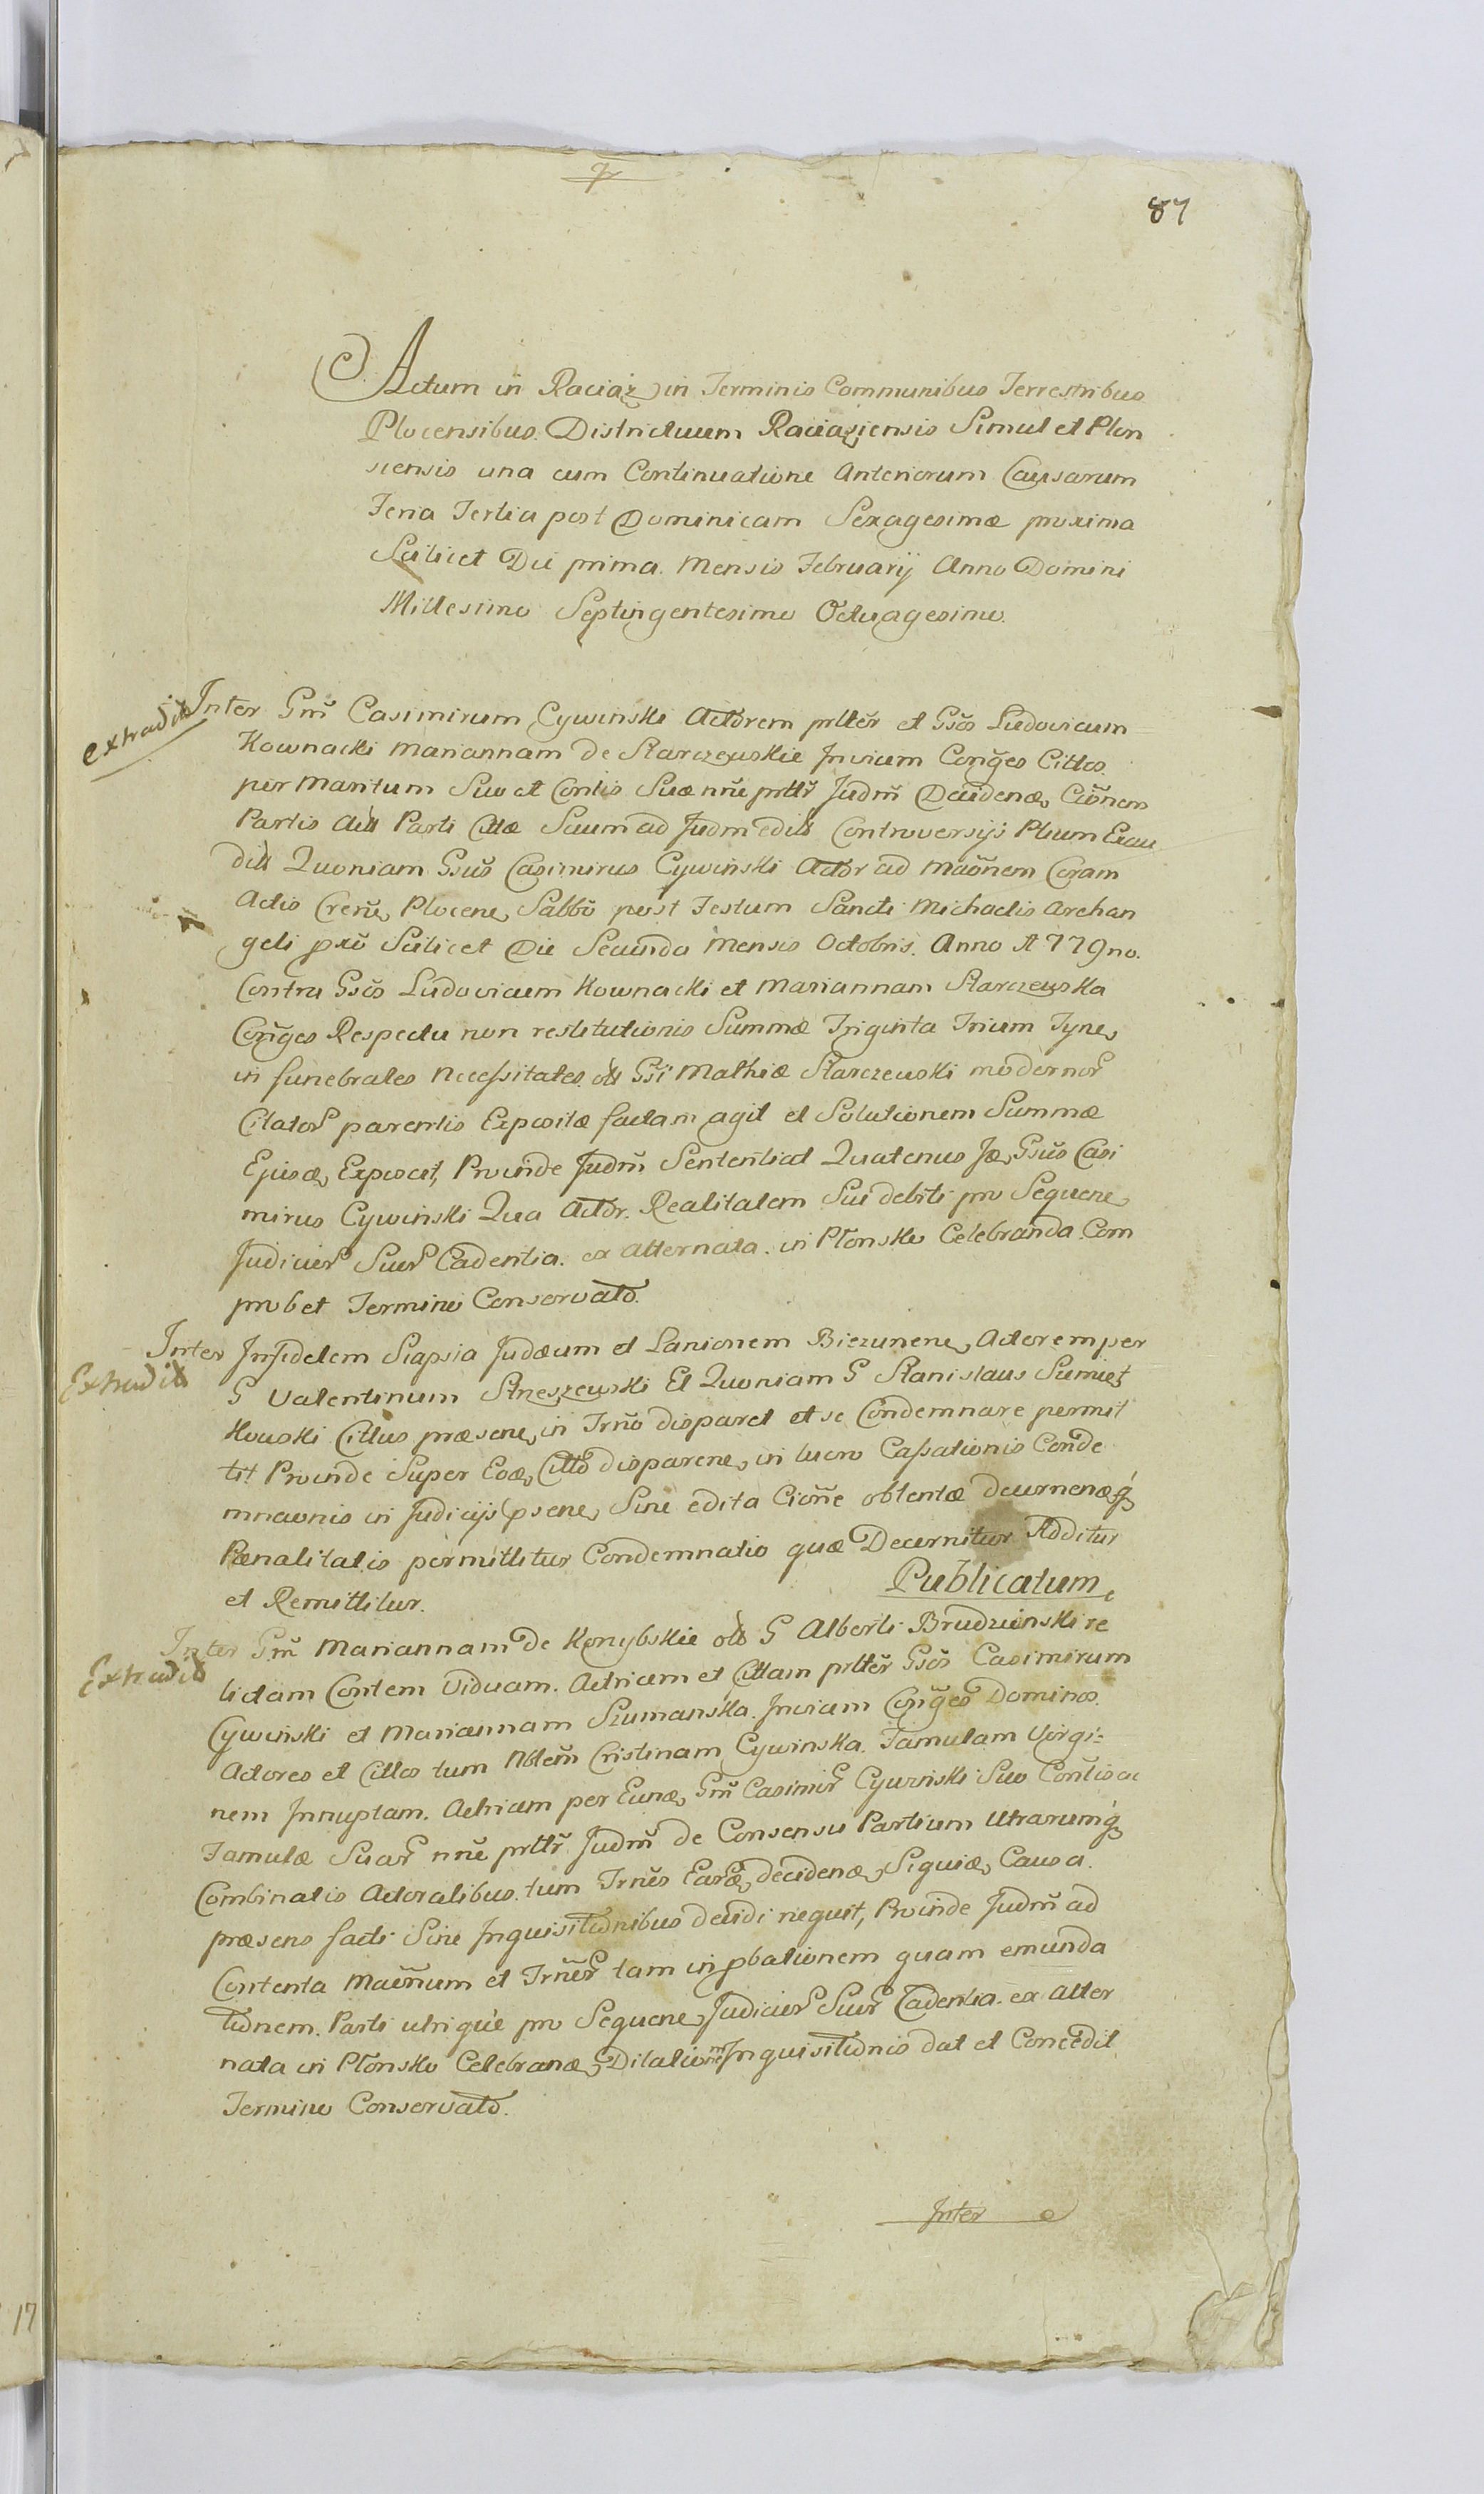 87
Actum in Raciąż in Terminis Communibus Terrestribus
Plocensibus Districtuum Raciąziensis Simul et Plon
siensis una cum Continuatione Anteriorum Causarum
Feria Tertia post Dominicam Sexagesimæ proxima
Scilicet Die prima Mensis Februarij Anno Domini
Millesimo Septingentesimo Octuagesimo.
extradit
Inter Gm̃ Casimirum Cywinski Actorem prltẽr et Gsõs Ludovicum
Kownacki Mariannam de Starczewskie Invicem Conĩges Cittos
per Maritum Suo et Contis Suæ nñe prltr̃ Judm̃ Decidenæ, Ciõnem
Partis Act̃ Parti Cittæ Suum ad Judm edit̃ Controversijs Ptium Exau
dit̃ Quoniam Gsũs Casimirus Cywinski Actor ad Maõnem Coram
Actis Cren̄, Plocen, Sabbõ post Festum Sancti Michaelis Archan
geli pxõ Scilicet Die Secunda Mensis Octobris. Anno 1779no.
Contra Gsõs Ludovicum Kownacki et Mariannam Starczewska
Conĩges Respectu non restitutionis Summæ Triginta Trium Tynf,
in funebrales necessitates olì Gsi Mathiæ Starczewski modernor̃
Citator̃ parentis Expositæ factam agit et Solutionem Summæ
Ejusæ, Exposcit, Proinde Judm̃ Sententiat Quatenus Jæ, Gsũs Casi
mirus Cywinski Qua Actor. Realitatem Sui debiti pro Sequene,
Judicior̃ Suor̃ Cadentia. ex alternata. in Płonsko Celebranda Com
probet Termino Conservato.
Extradit
Inter Infidelem Siapsia Judæum et Lanionem Biezunene, Actorem per
G Valentinum Streszewski Et Quoniam G Stanislaus Sumięt
kowski Cittus præsene, in Trño disparet et se Condemnare permit
tit Proinde Super Eoæ, Citto disparene, in lucro Cassationis Conde
mnaonis in Judicijs psene, Sine edita Cioñe obtentæ decernenæq̃
Pænalitatis permittitur Condemnatio quæ Decernitur Additur
et Remittitur.
Publicatum
Extradit
Inter Gm̃ Mariannam de Konybskie olì G Alberti Brudzinski re
lictam Contem Viduam. Actricem et Cittam prltẽr Gsõs Casimirum
Cywinski et Mariannam Szumanska. Invicem Conĩges Dominos.
Actores et Cittos tum Nblem̃ Cristinam Cywinska. Famulam Virgi=
nem Innuptam. Actricem per Eunæ, Gm̃ Casimir̃ Cywinski Suo Contis ac
Famulæ Suar̃ nñe prltr̃ Judm̃ de Consensu Partium Utrarumq̃
Combinatis Actoralibus. tum Trñis Earæ, decidenæ, Siquiæ, Causa.
præsens facti Sine Inquisitionibus decidi nequit, Proinde Judm̃ ad
Contenta Maõnum et Trñor̃ tam in pbationem quam emunda
tionem. Parti utrique pro Sequene, Judicior̃ Suor̃ Cadentia. ex Alter
nata in Płonsko Celebranæ, Dilationem Inquisitionis dat et Concedit
Termino Conservato.
Inter
17